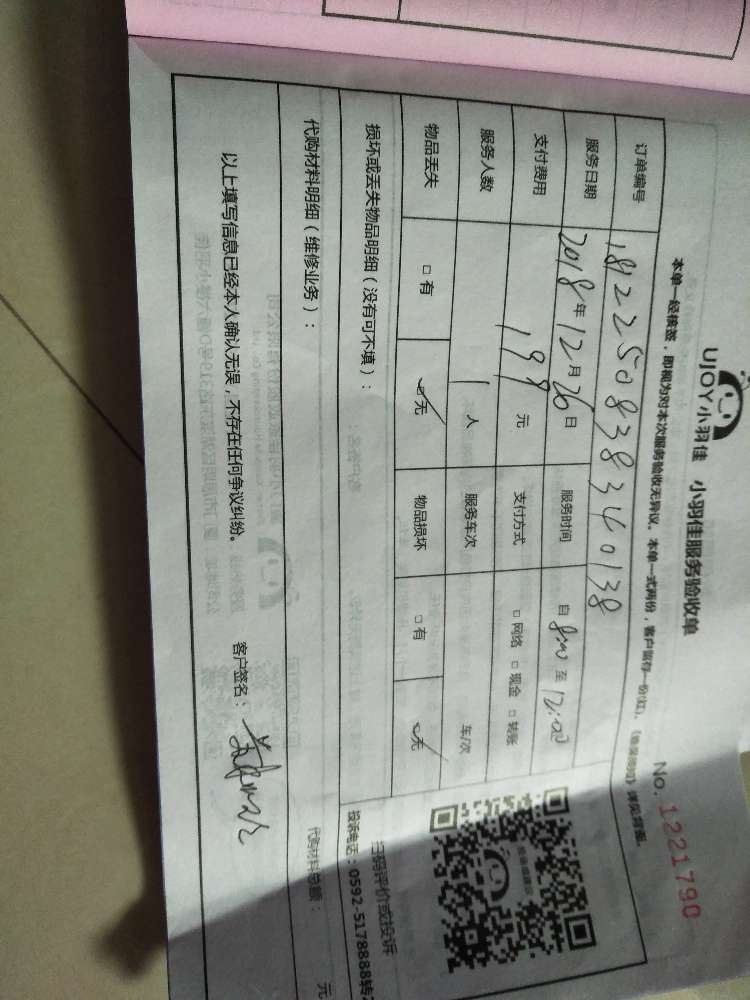 UJOY小羽佳 小羽佳服务验收单
NO. 1221790
本单一经核签，即视为对本次服务验收无异议。本单一式两份，客户留存一份(红)。
订单编号 1812250838340138
服务日期 2018年12月26日 服务时间 自 8:00 至 12:00
支付费用 199 元 支付方式 □ 网络 □ 现金 □ 转账
服务人数 1 人 服务车次 车/次
物品丢失 □ 有 ☑ 无 物品损坏 □ 有 ☑ 无
扫码评价或投诉
投诉电话：0592-5178888转
损坏或丢失物品明细（没有可不填）：
代购材料明细（维修业务）：
代购材料总额： 元
以上填写信息已经本人确认无误，不存在任何争议纠纷。 客户签名：